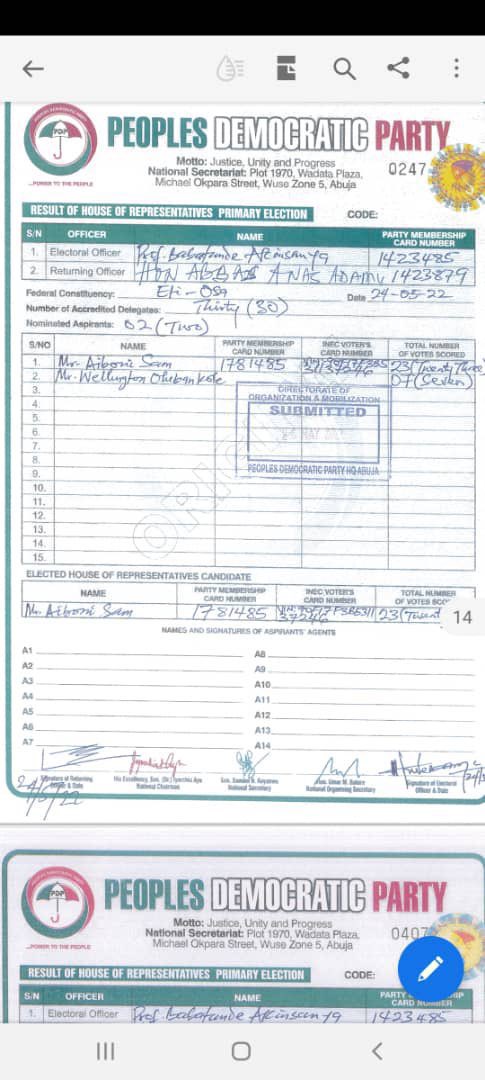 PDP
...POWER TO THE PEOPLE
PEOPLES DEMOCRATIC PARTY
Motto: Justice, Unity and Progress
National Secretariat: Plot 1970, Wadata Plaza,
Michael Okpara Street, Wuse Zone 5, Abuja
0247
RESULT OF HOUSE OF REPRESENTATIVES PRIMARY ELECTION CODE:
S/N OFFICER NAME PARTY MEMBERSHIP CARD NUMBER
1. Electoral Officer Prof. Babatunde 1423485
2. Returning Officer HON ABBAS ANAS ADAMU 1423879
Federal Constituency: Eti-Osa Date 24-05-22
Number of Accredited Delegates: Thirty (30)
Nominated Aspirants: 02 (Two)
S/NO NAME PARTY MEMBERSHIP CARD NUMBER INEC VOTER'S CARD NUMBER TOTAL NUMBER OF VOTES SCORED
1. Mr. Aiboni Sam 1781485 23 (Twenty Three)
2. Mr. Wellington 07 (Seven)
3.
4.
5.
6.
7.
8.
9.
10.
11.
12.
13.
14.
15.
DIRECTORATE OF
ORGANIZATION & MOBILIZATION
SUBMITTED
MAY
PEOPLES DEMOCRATIC PARTY HQ ABUJA
ELECTED HOUSE OF REPRESENTATIVES CANDIDATE
NAME PARTY MEMBERSHIP CARD NUMBER INEC VOTER'S CARD NUMBER TOTAL NUMBER OF VOTES SCO
Mr. Aiboni Sam 1781485 37246 23
14
NAMES AND SIGNATURES OF ASPIRANTS' AGENTS
A1 A8
A2 A9
A3 A10
A4 A11
A5 A12
A6 A13
A7 A14
Signature of Returning Officer & Date
National Chairman
National Secretary
National Organising Secretary
Signature of Electoral Officer & Date
24/5/22
PDP
...POWER TO THE PEOPLE
PEOPLES DEMOCRATIC PARTY
Motto: Justice, Unity and Progress
National Secretariat: Plot 1970, Wadata Plaza,
Michael Okpara Street, Wuse Zone 5, Abuja
0407
RESULT OF HOUSE OF REPRESENTATIVES PRIMARY ELECTION CODE:
S/N OFFICER NAME PARTY CARD NUMBER
1. Electoral Officer Prof. Babatunde 1423485